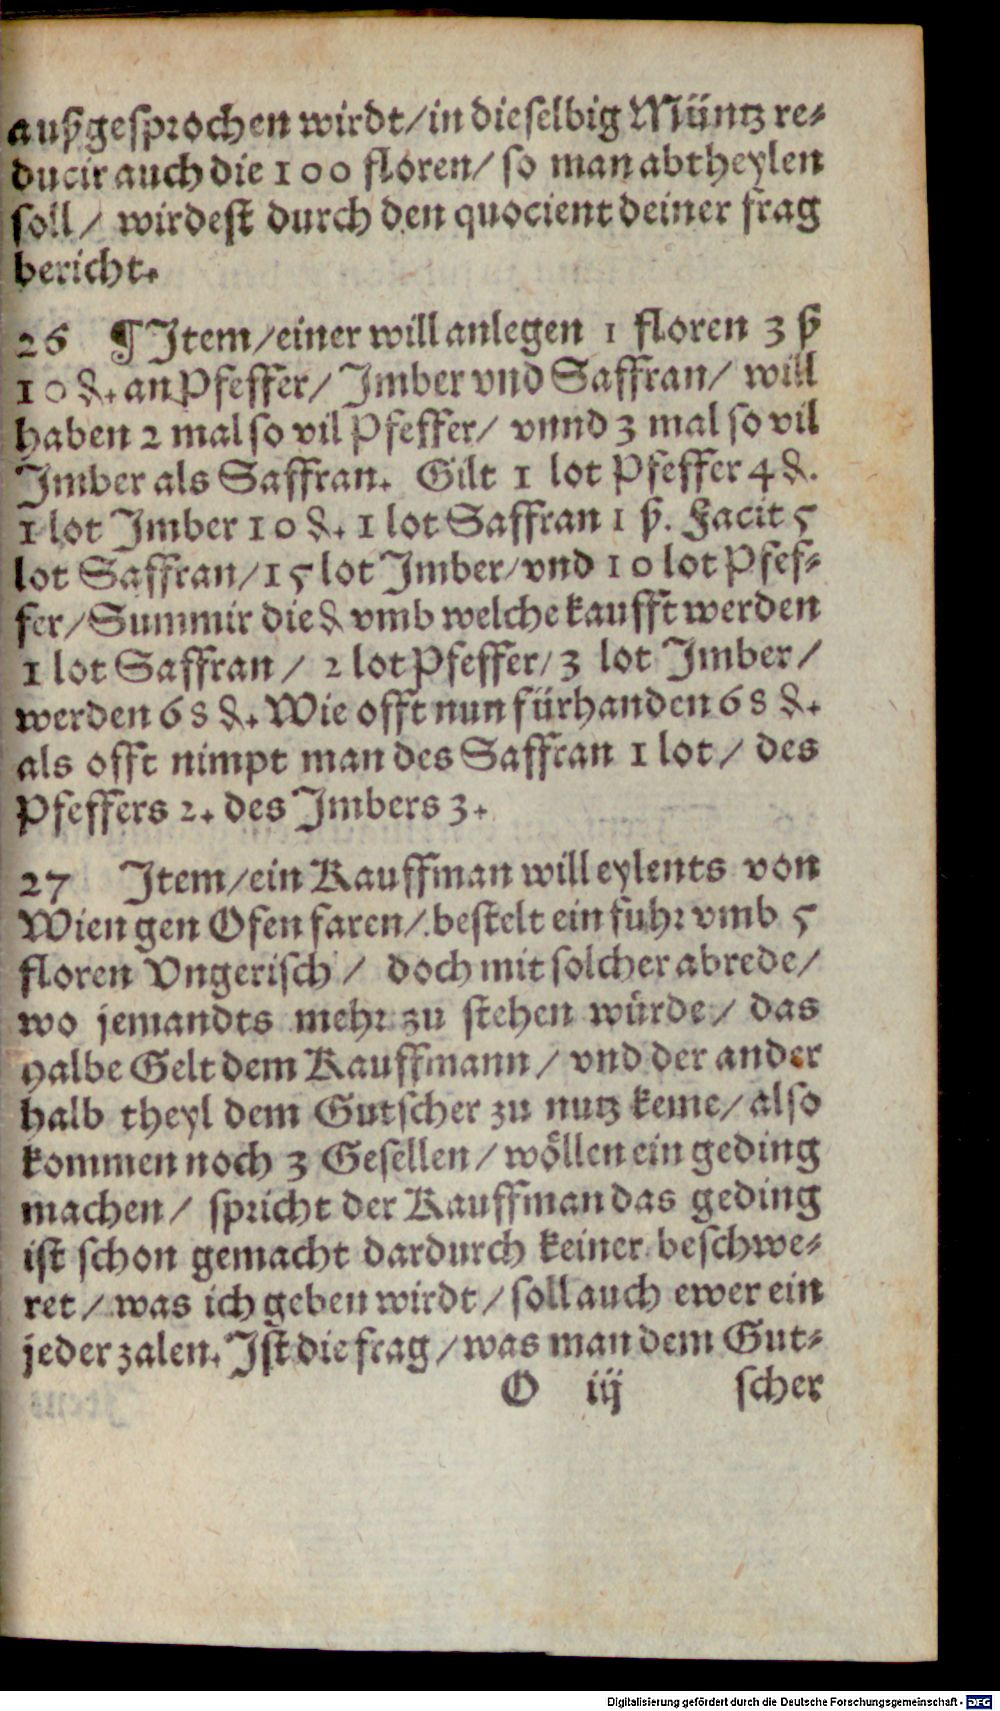 außgesprochen wirdt/in dieselbig Müntz re-
ducir auch die 100 floren/ so man abtheylen
soll/ wirdest durch den quocient deiner frag
bericht.
26 ¶ Item/einer will anlegen 1 floren 3 ß
10 ₰. an Pfeffer/ Imber vnd Saffran/ will
haben 2 mal so vil Pfeffer/ vnnd 3 mal so vil
Imber als Saffran. Gilt 1 lot Pfeffer 4 ₰.
1 lot Imber 10 ₰. 1 lot Saffran 1 ß. Facit 5
lot Saffran/15 lot Imber/vnd 10 lot Pfef-
fer/Summir die ₰ vmb welche kaufft werden
1 lot Saffran/ 2 lot Pfeffer/3 lot Imber/
werden 68 ₰. Wie offt nun fürhanden 68 ₰.
als offt nimpt man des Saffran 1 lot/ des
Pfeffers 2. des Imbers 3.
27 Item/ein Kauffman will eylents von
Wien gen Ofen faren/ bestelt ein fuhr vmb 5
floren Vngerisch/ doch mit solcher abrede/
wo jemandts mehr zu stehen würde/ das
halbe Gelt dem Kauffmann/ vnd der ander
halb theyl dem Gutscher zu nutz keme/ also
kommen noch 3 Gesellen/ wöllen ein geding
machen/ spricht der Kauffman das geding
ist schon gemacht dardurch keiner beschwe-
ret/ was ich geben wirdt/ soll auch ewer ein
jeder zalen. Ist die frag/was man dem Gut-
O iij scher
Digitalisierung gefördert durch die Deutsche Forschungsgemeinschaft - DFG